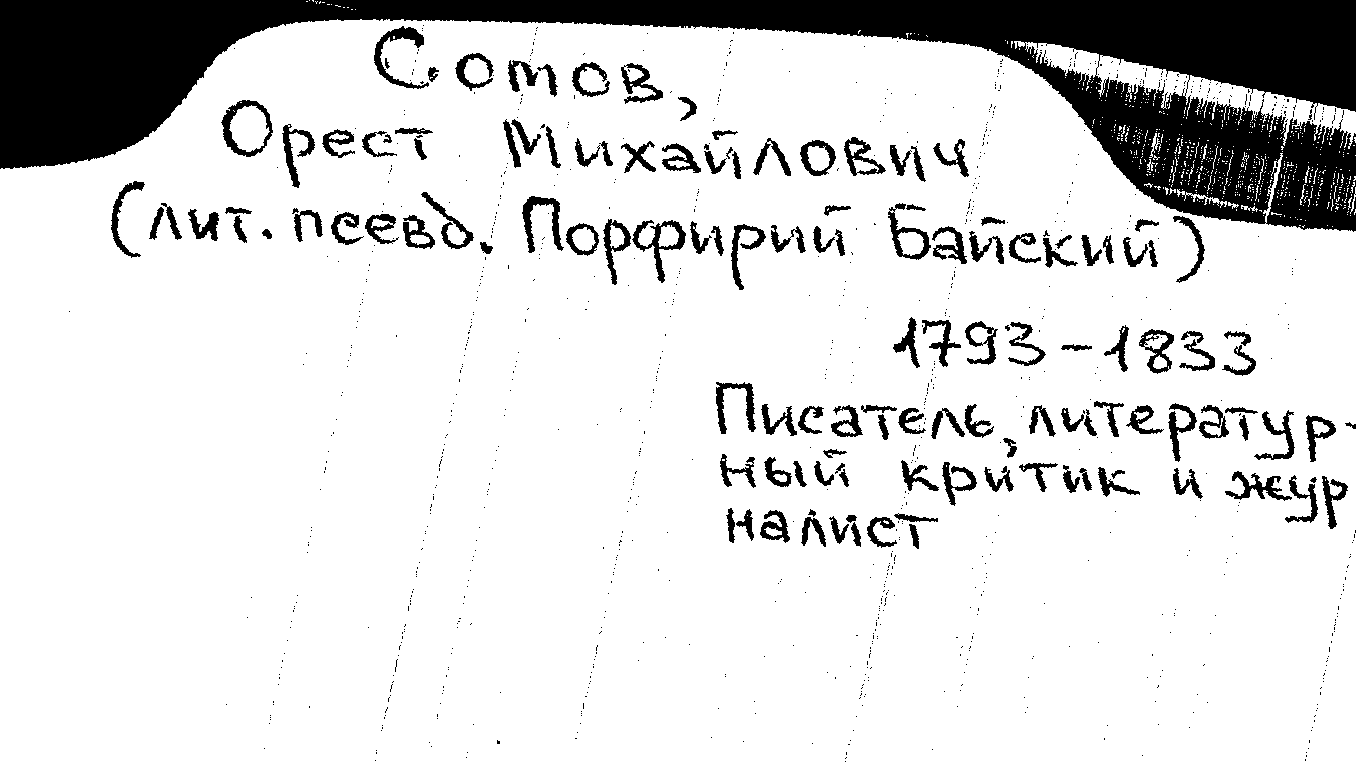 Сотов,
Орест Михайлович
(лит. псевд. Порфирий Байский)
1793-1833
Писатель, литератур-
ный критик и жур
налист